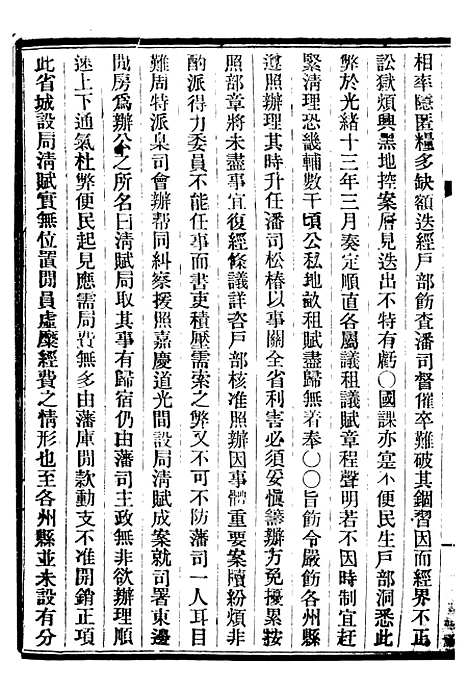 相率隱匿糧多缺額迭經戶部飭查潘司督催卒難破其錮習因而經界不正
訟獄煩興黑地控案層見迭出不特有虧〇國課亦寔不便民生戶部洞悉此
弊於光緒十三年三月奏定順直各屬議租議賦章程聲明若不因時制宜赶
緊淸理恐畿輔數千頃公私地畝租賦盡歸無若奉〇〇旨飭令嚴飭各州縣
遵照辦理其時升任潘司松椿以事關全省利害必須妥愼諦辦方免擾累按
照部章將未盡事宜復經條議詳咨戶部核准照辦因事體重要案牘紛煩非
酌派得力委員不能任事而書吏積壓需索之弊又不可不防藩司一人耳目
難周特派臬司會辦帮同糾察援照嘉慶道光間設局淸賦成案就司署東邊
閒房爲辦公之所名曰淸賦局取其事有歸宿仍由藩司主政無非欲辦理順
速上下通氣杜弊便民起見應需局費無多由藩庫閒款動支不准開銷正項
此省城設局淸賦實無位置閒員虛糜經費之情形也至各州縣並未設有分